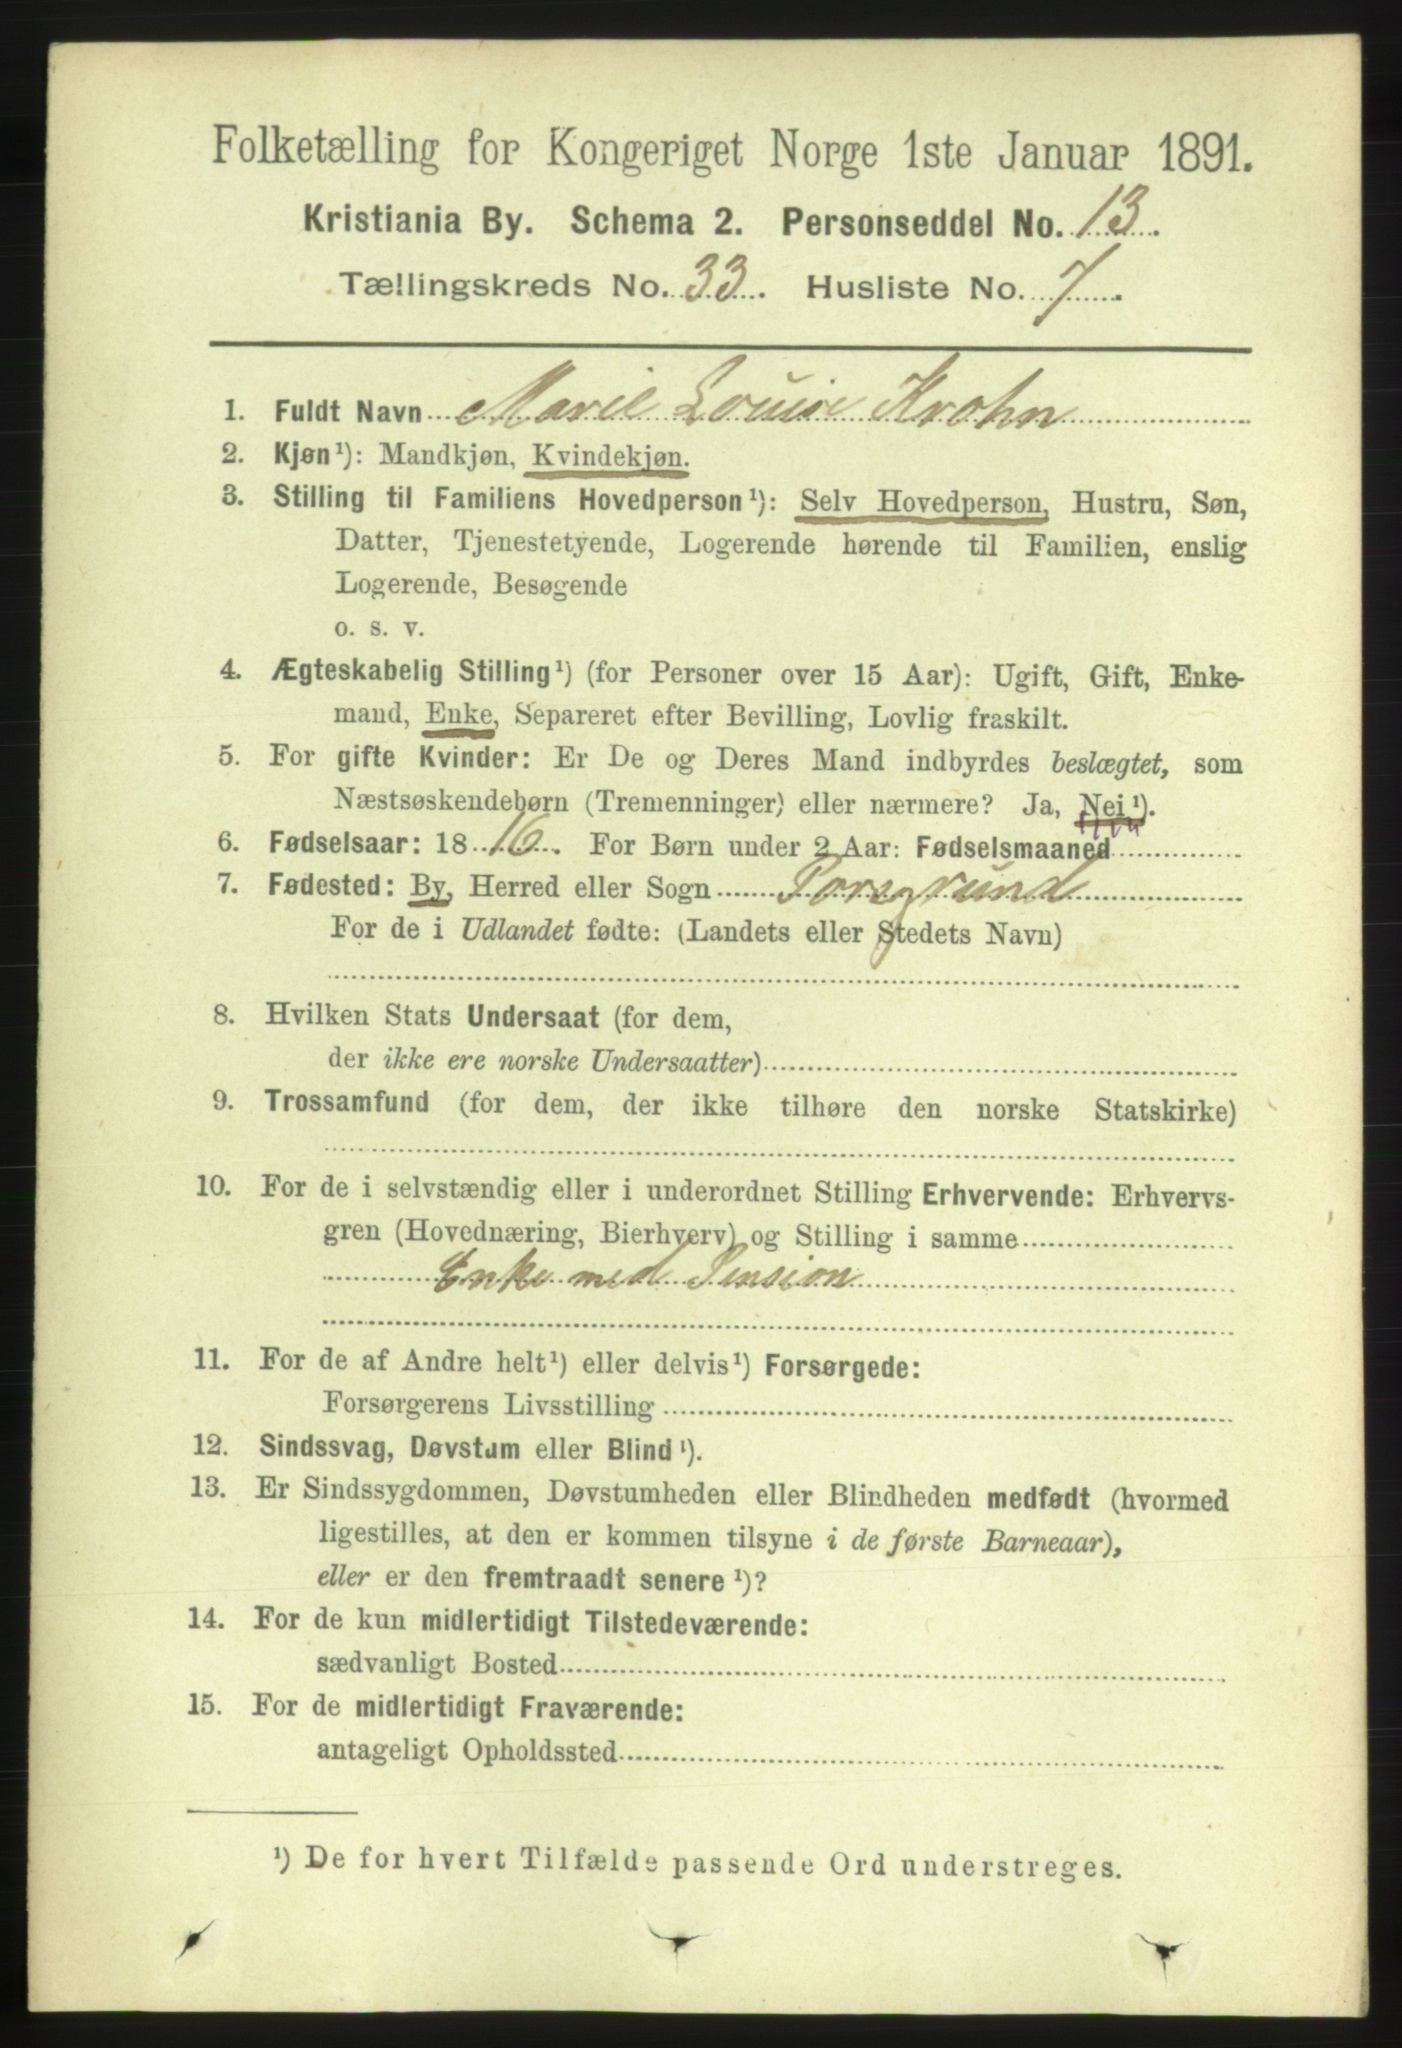 Folketælling for Kongeriget Norge 1ste Januar 1891.
Kristiania By. Schema 2. Personseddel No. 13.
Tællingskreds No. 33. Husliste No. 7.
1. Fuldt Navn Marie Louise Krohn
2. Kjøn¹): Mandkjøn, Kvindekjøn.
3. Stilling til Familiens Hovedperson¹): Selv Hovedperson, Hustru, Søn,
Datter, Tjenestetyende, Logerende hørende til Familien, enslig
Logerende, Besøgende
o. s. v.
4. Ægteskabelig Stilling¹) (for Personer over 15 Aar): Ugift, Gift, Enke-
mand, Enke, Separeret efter Bevilling, Lovlig fraskilt.
5. For gifte Kvinder: Er De og Deres Mand indbyrdes beslægtet, som
Næstsøskendebørn (Tremenninger) eller nærmere? Ja, Nei¹).
6. Fødselsaar: 1816. For Børn under 2 Aar: Fødselsmaaned
7. Fødested: By, Herred eller Sogn Porsgrund
For de i Udlandet fødte: (Landets eller Stedets Navn)
8. Hvilken Stats Undersaat (for dem,
der ikke ere norske Undersaatter)
9. Trossamfund (for dem, der ikke tilhøre den norske Statskirke)
10. For de i selvstændig eller i underordnet Stilling Erhvervende: Erhvervs-
gren (Hovednæring, Bierhverv) og Stilling i samme
Enke med Pension
11. For de af Andre helt¹) eller delvis¹) Forsørgede:
Forsørgerens Livsstilling
12. Sindssvag, Døvstum eller Blind¹).
13. Er Sindssygdommen, Døvstumheden eller Blindheden medfødt (hvormed
ligestilles, at den er kommen tilsyne i de første Barneaar),
eller er den fremtraadt senere¹)?
14. For de kun midlertidigt Tilstedeværende:
sædvanligt Bosted
15. For de midlertidigt Fraværende:
antageligt Opholdssted
¹) De for hvert Tilfælde passende Ord understreges.